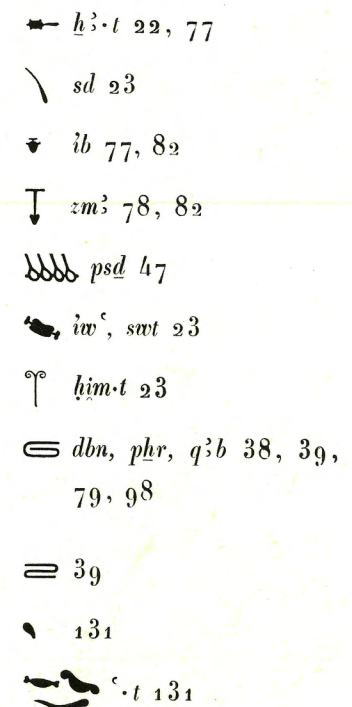 ẖꜣ·t 22, 77
sd 23
ı͗b 77, 82
zmꜣ 78, 82
psḏ 47
ı͗wꜥ, swt 23
ḥı͗m·t 23
dbn, pẖr, qꜣb 38, 39,
79, 98
39
131
ꜥ·t 131